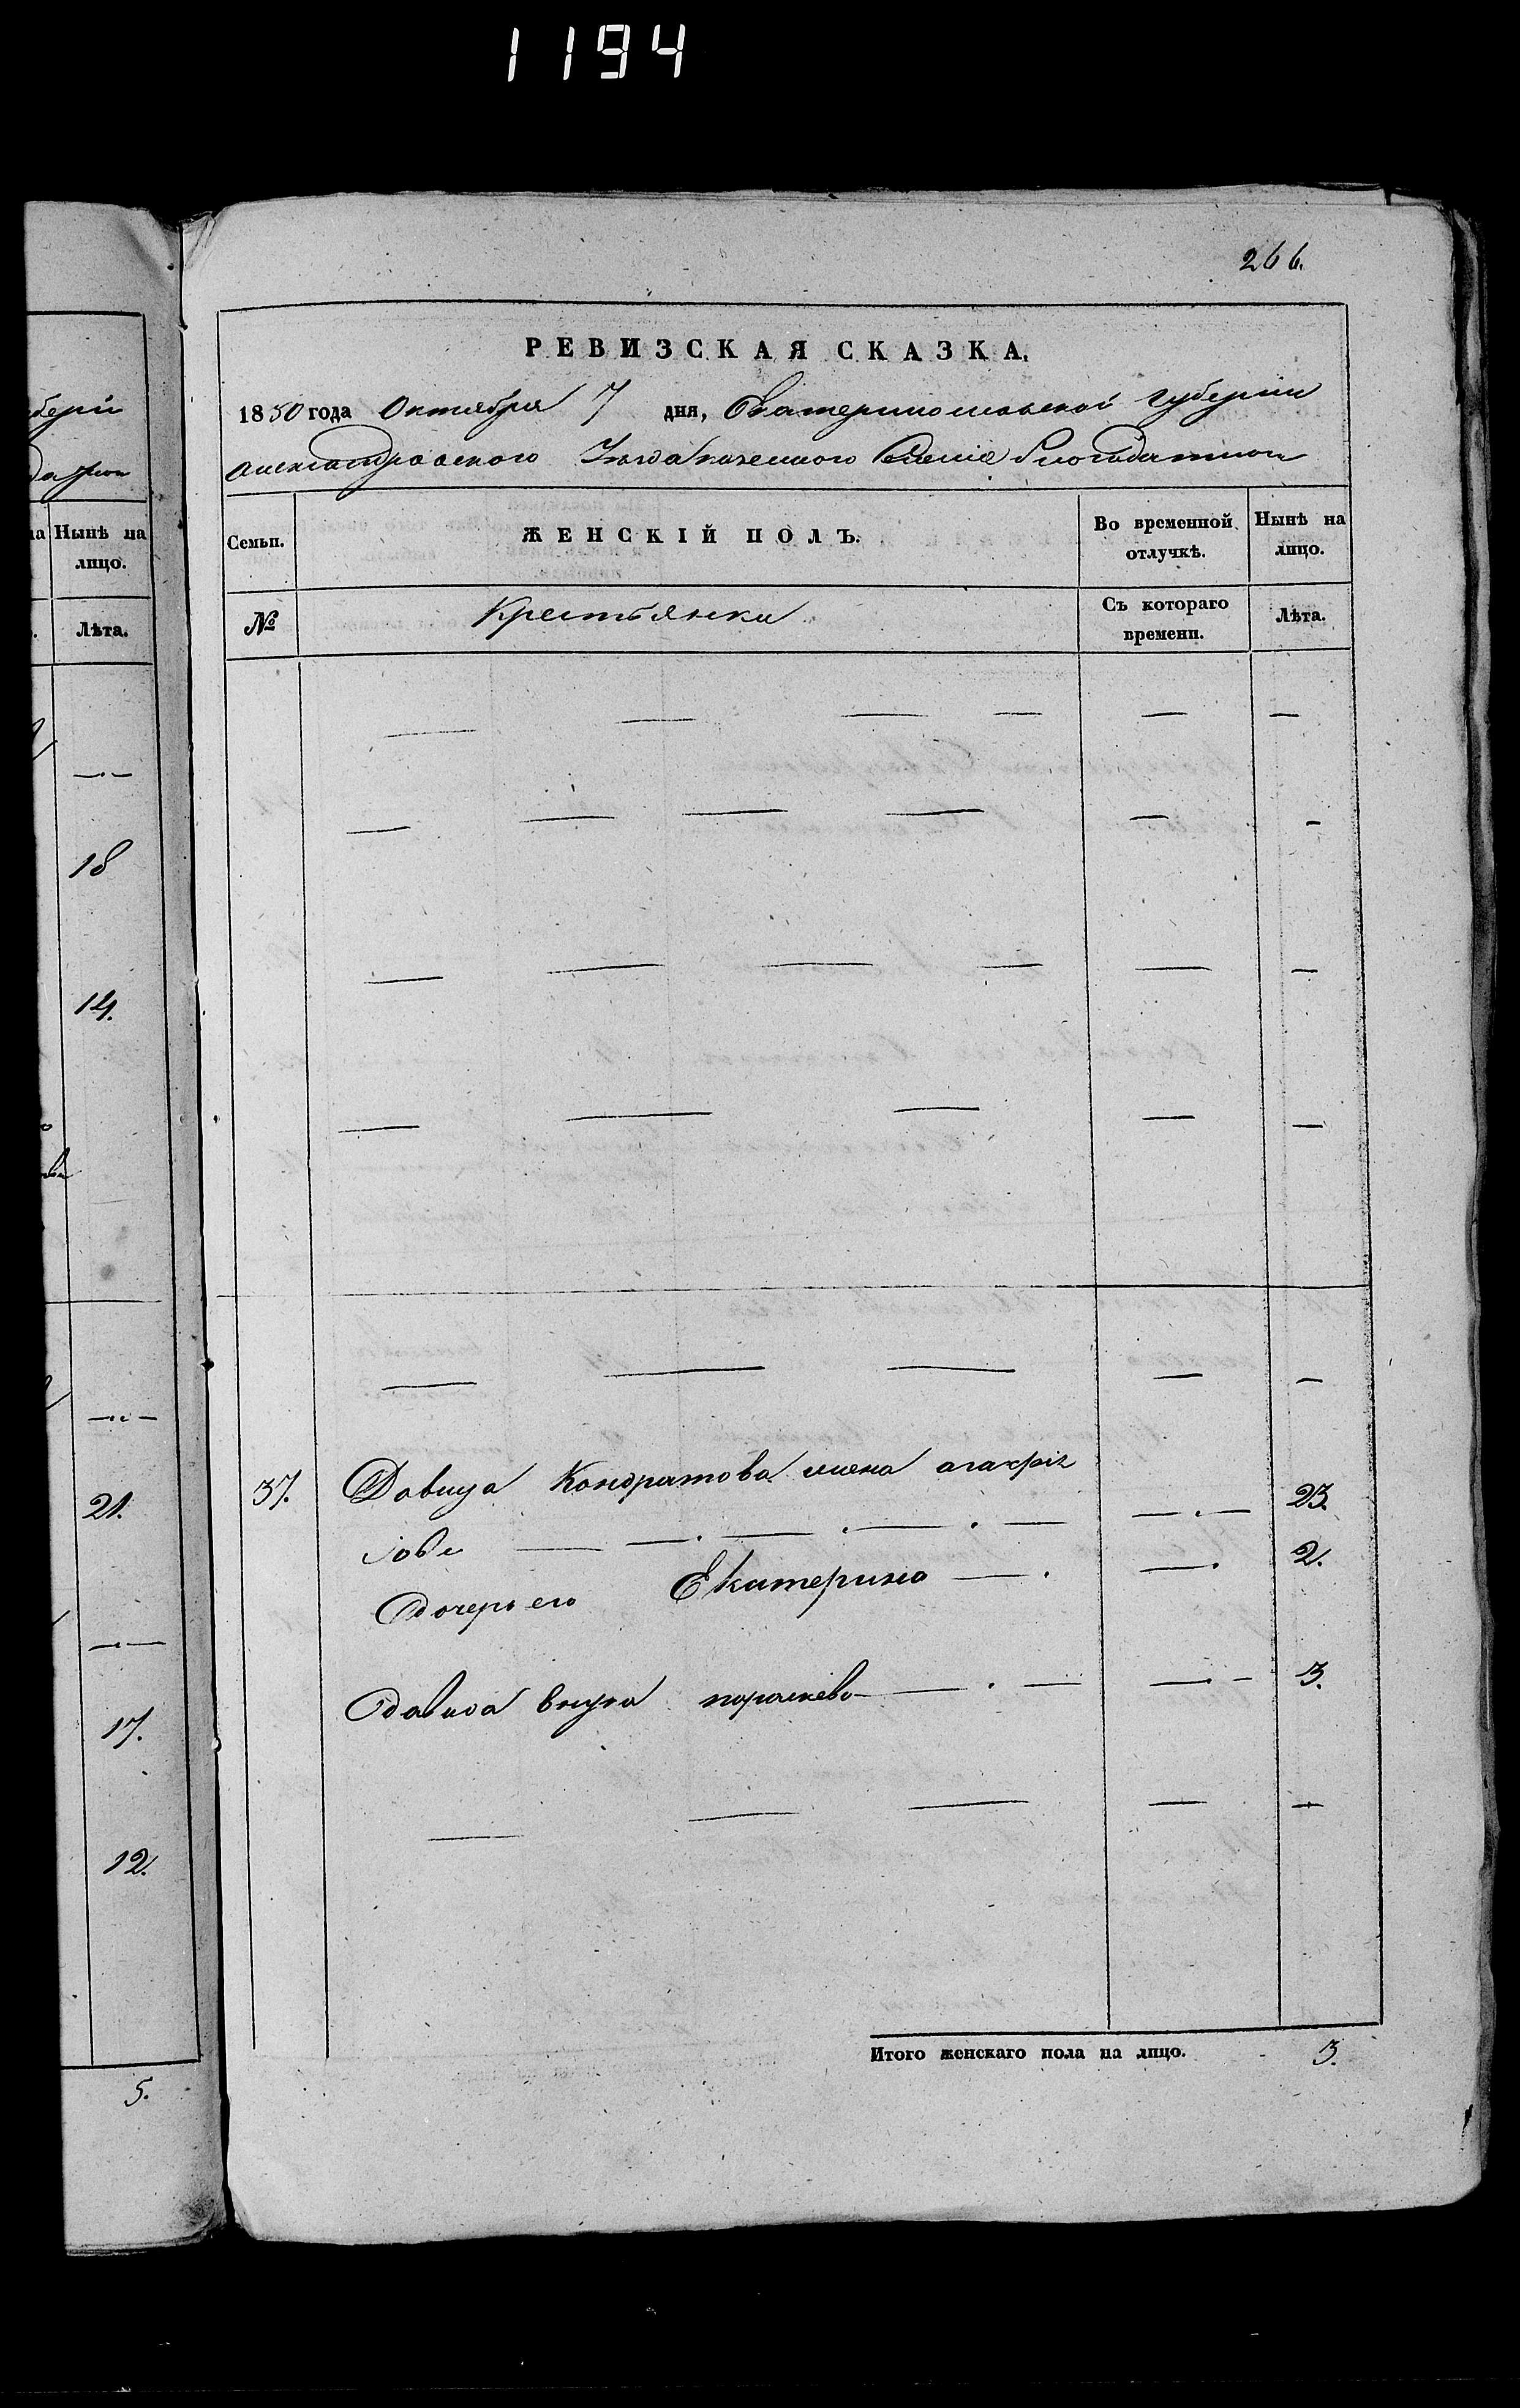 1194
266.
РЕВИЗСКАЯ СКАЗКА,
1850 года Октября 7 дня, Екатеринославской губерніи
Александровского Уезда казенного Селенія Благодатнои
Семьи.
ЖЕНСКІЙ ПОЛЪ.
Во временной отлучкѣ.
Нынѣ на лицо.
№
Крестьянки
Съ котораго времени.
Лѣта.
37. Давида Кондратова жена агафія
Іовле — . — . — . — — . — 23.
дочерь его Екатерина — . — . 2.
давида внука парасkeва — . — — . — 3.
Итого женскаго пола на лицо. 3.
бери
Нынѣ на лицо.
Лѣта.
18
14.
21.
17.
12.
5.